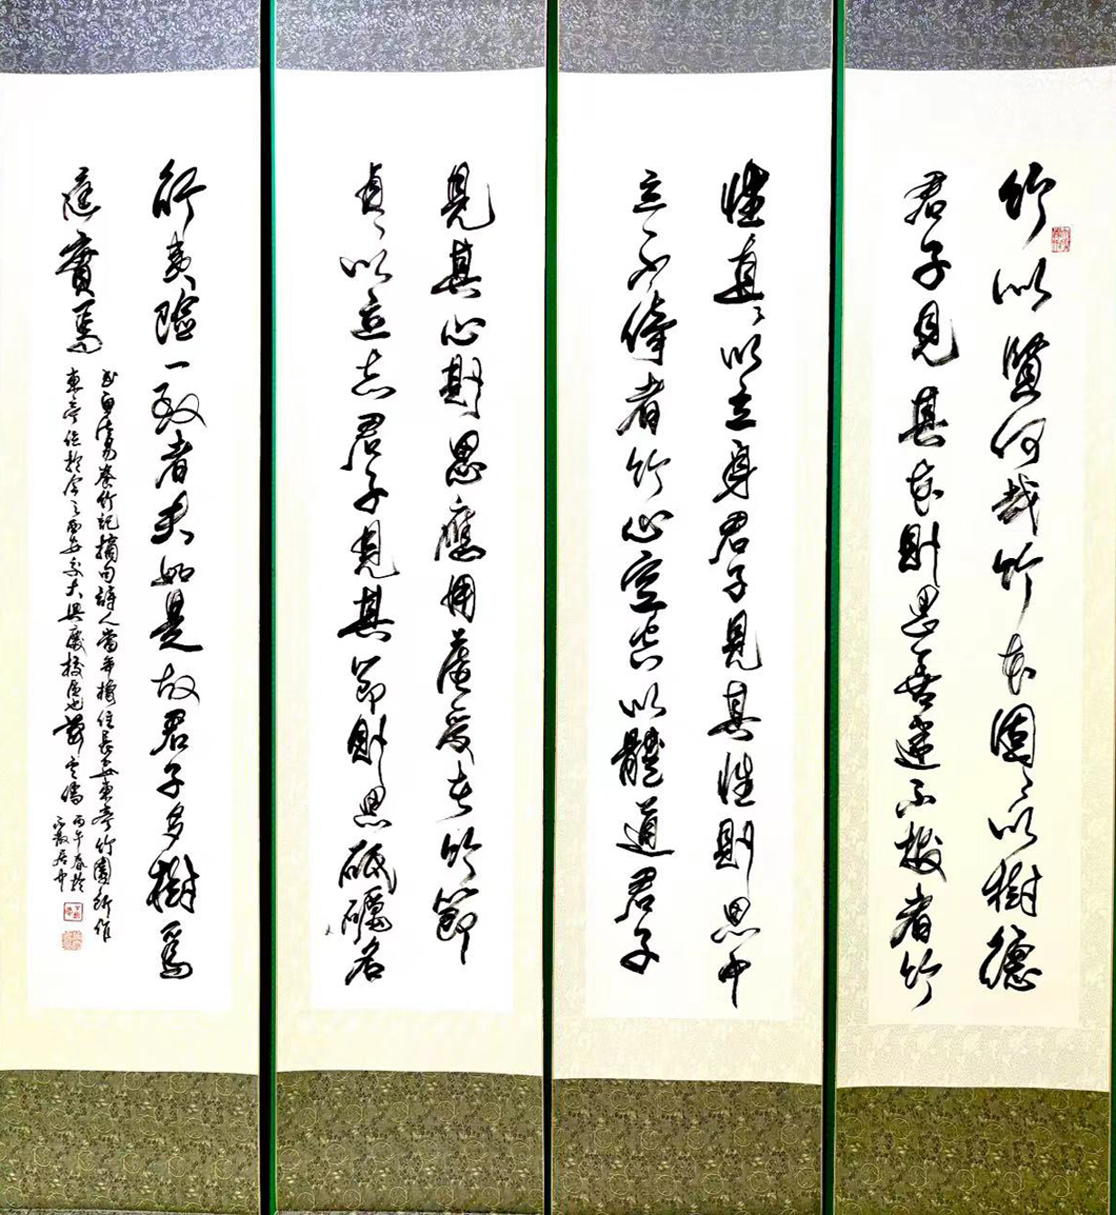 竹似賢何哉竹本固〻以樹德
君子見其本則思善建不拔者竹
性直〻以立身君子見其性則思中
立不倚者竹心空空以體道君子
見其心則思應用虛受者竹節
貞〻以立志君子見其節則思砥礪名
行夷險一致者夫如是故君子多樹焉
庭實焉
書白居易養竹記摘句詩人當年 住長安東亭竹園所作
東亭位於今之西安交大興慶校區也
丙午春於